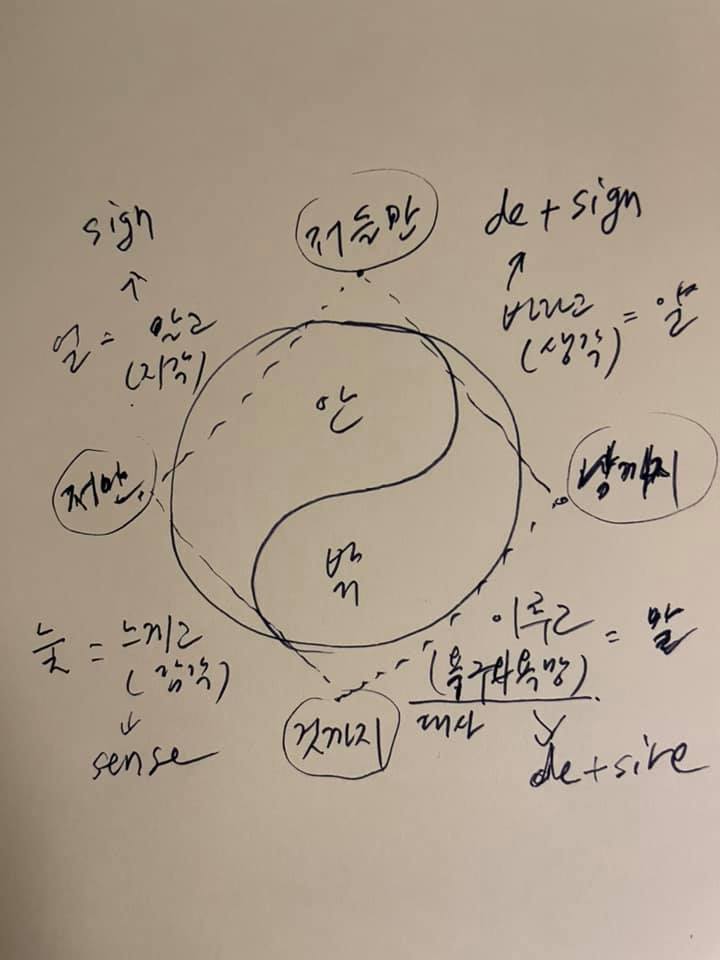 sign
저들만
de + sign
↑
↑
얼 = 알고
(지각)
버리고
(생각) =
안
저만
남까지
밖
늦 = 느끼고
(감각)
이루고
(욕구와 욕망) = 말
대사
↓
sense
것까지
de+sire